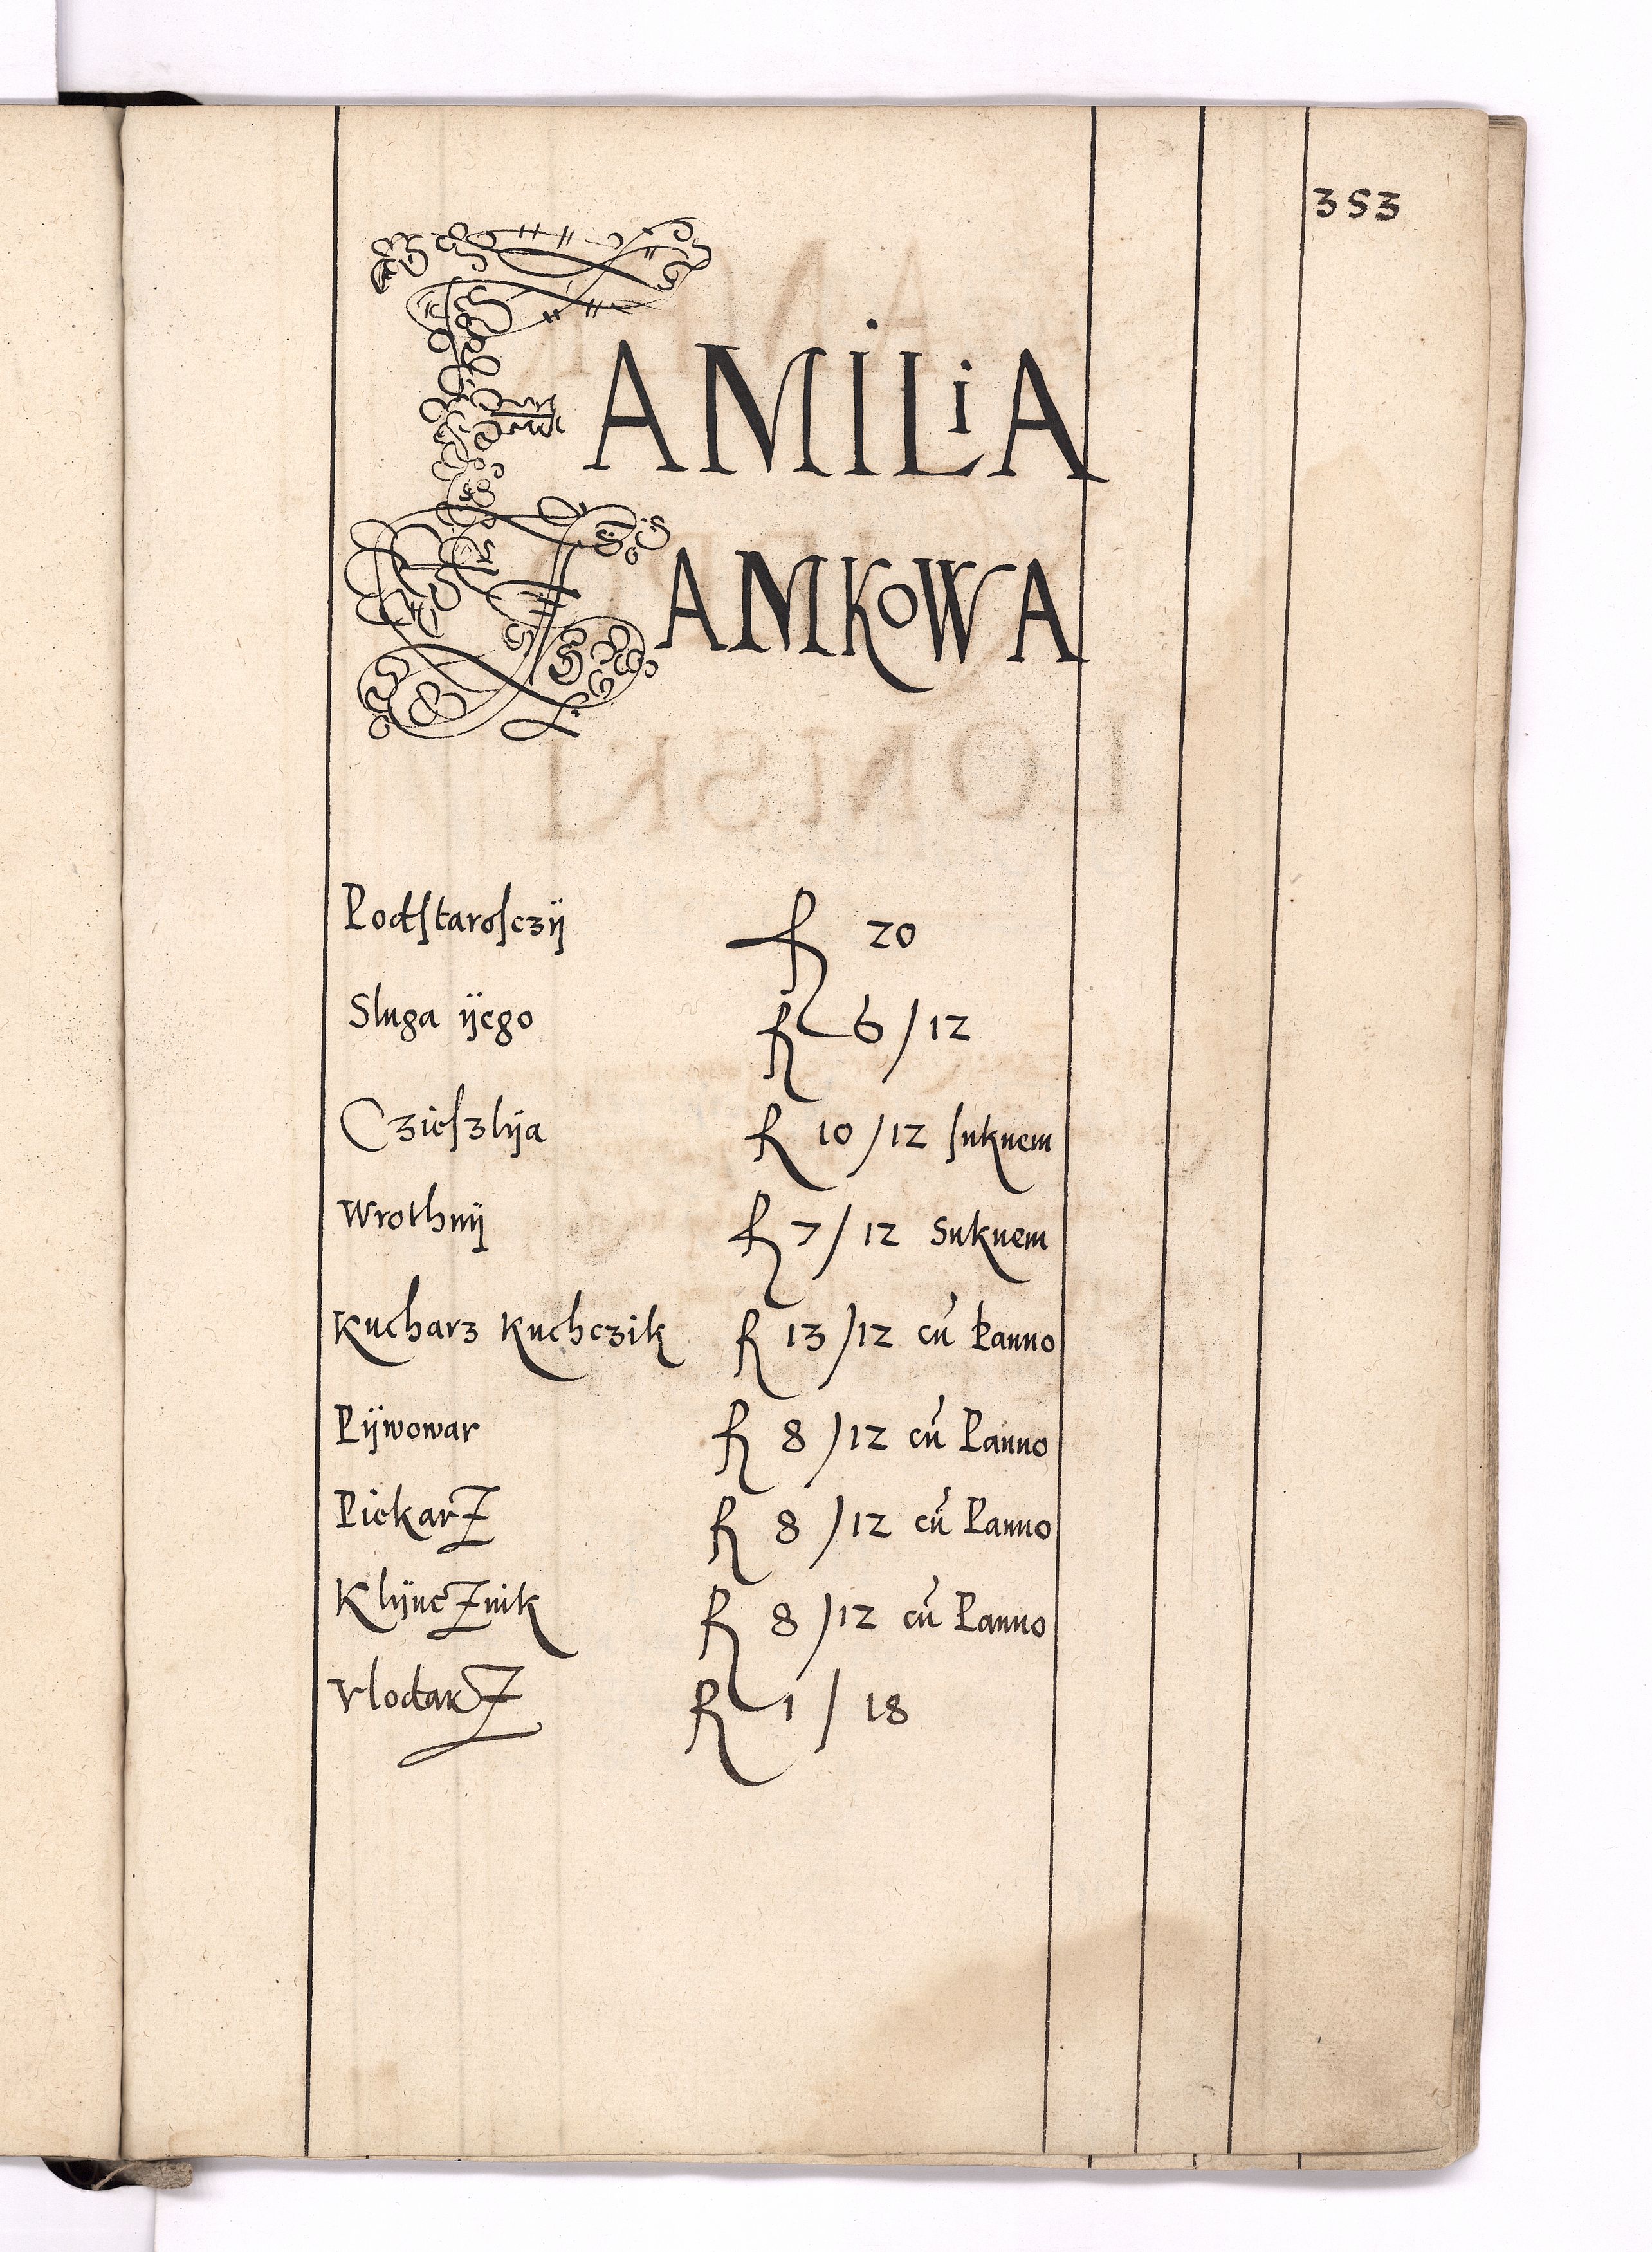 353
FAMILiA
ZAMKOWA
Podſtaroſczÿ
ƒ 20
Sluga ÿego
ƒ 6 / 12
Czieſzlÿa
ƒ 10 / 12 ſuknem
Wrothnÿ
ƒ 7 / 12 Suknem
Kucharz Kuchczik
ƒ 13 / 12 cū Panno
Pÿwowar
ƒ 8 / 12 cū Panno
PiekarZ
ƒ 8 / 12 cū Panno
KlÿucZnik
ƒ 8 / 12 cū Panno
VlodarZ
ƒ 1 / 18